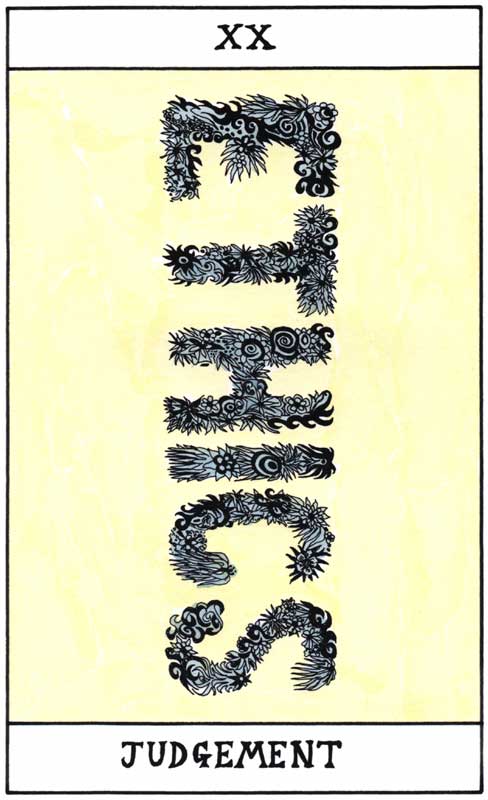 XX
ETHICS
JUDGEMENT